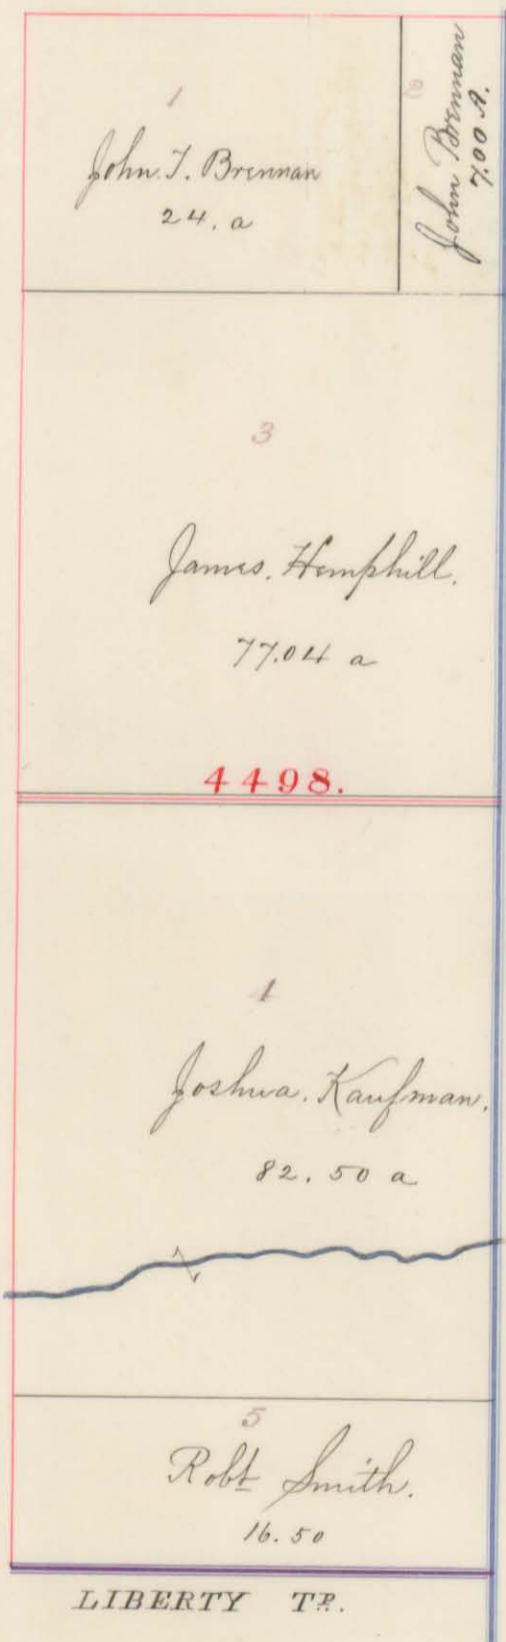 1
John. T. Brennan
24. a
2
John Brennan
7.00 A.
3
James. Hemphill.
77.04 a
4498.
1
Joshua. Kaufman.
82. 50 a
5
Robt Smith.
16. 50
LIBERTY TP.